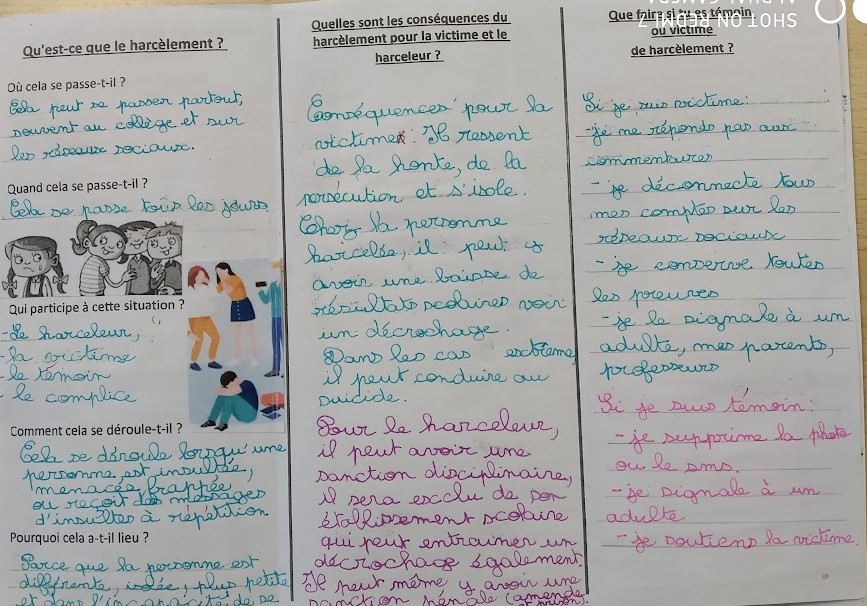 Qu'est-ce que le harcèlement ?
Où cela se passe-t-il ?
Cela peut se passer partout,
souvent au collège et sur
les réseaux sociaux.
Quand cela se passe-t-il ?
Cela se passe tous les jours.
Qui participe à cette situation ?
-Le harceleur,
-la victime
-le témoin
-le complice
Comment cela se déroule-t-il ?
Cela se déroule lorsqu'une
personne est insultée,
menacée, frappée
ou reçoit des messages
d'insultes à répétition
Pourquoi cela a-t-il lieu ?
Parce que la personne est
différente, isolée, plus petite
et dans l'incapacité de se
Quelles sont les conséquences du
harcèlement pour la victime et le
harceleur ?
Conséquences pour la
victime. Il ressent
de la honte, de la
persécution et s'isole.
Chez la personne
harcelée, il peut y
avoir une baisse de
résultats scolaires voir
un décrochage.
Dans les cas extrème,
il peut conduire au
suicide.
Pour le harceleur,
il peut avoir une
sanction disciplinaire,
il sera exclu de son
établissement scolaire
qui peut entrainer un
décrochage également.
Il peut même y avoir une
sanction pénale (amende
et prison).
Que faire si tu es témoin
ou victime
de harcèlement ?
Si je suis victime:
-je ne réponds pas aux
commentaires
-je déconnecte tous
mes comptes sur les
réseaux sociaux
-je conserve toutes
les preuves
-je le signale à un
adulte, mes parents,
professeurs
Si je suis témoin:
-je supprime la photo
ou le sms.
-je signale à un
adulte
-je soutiens la victime.
SHOT ON REDMI 7